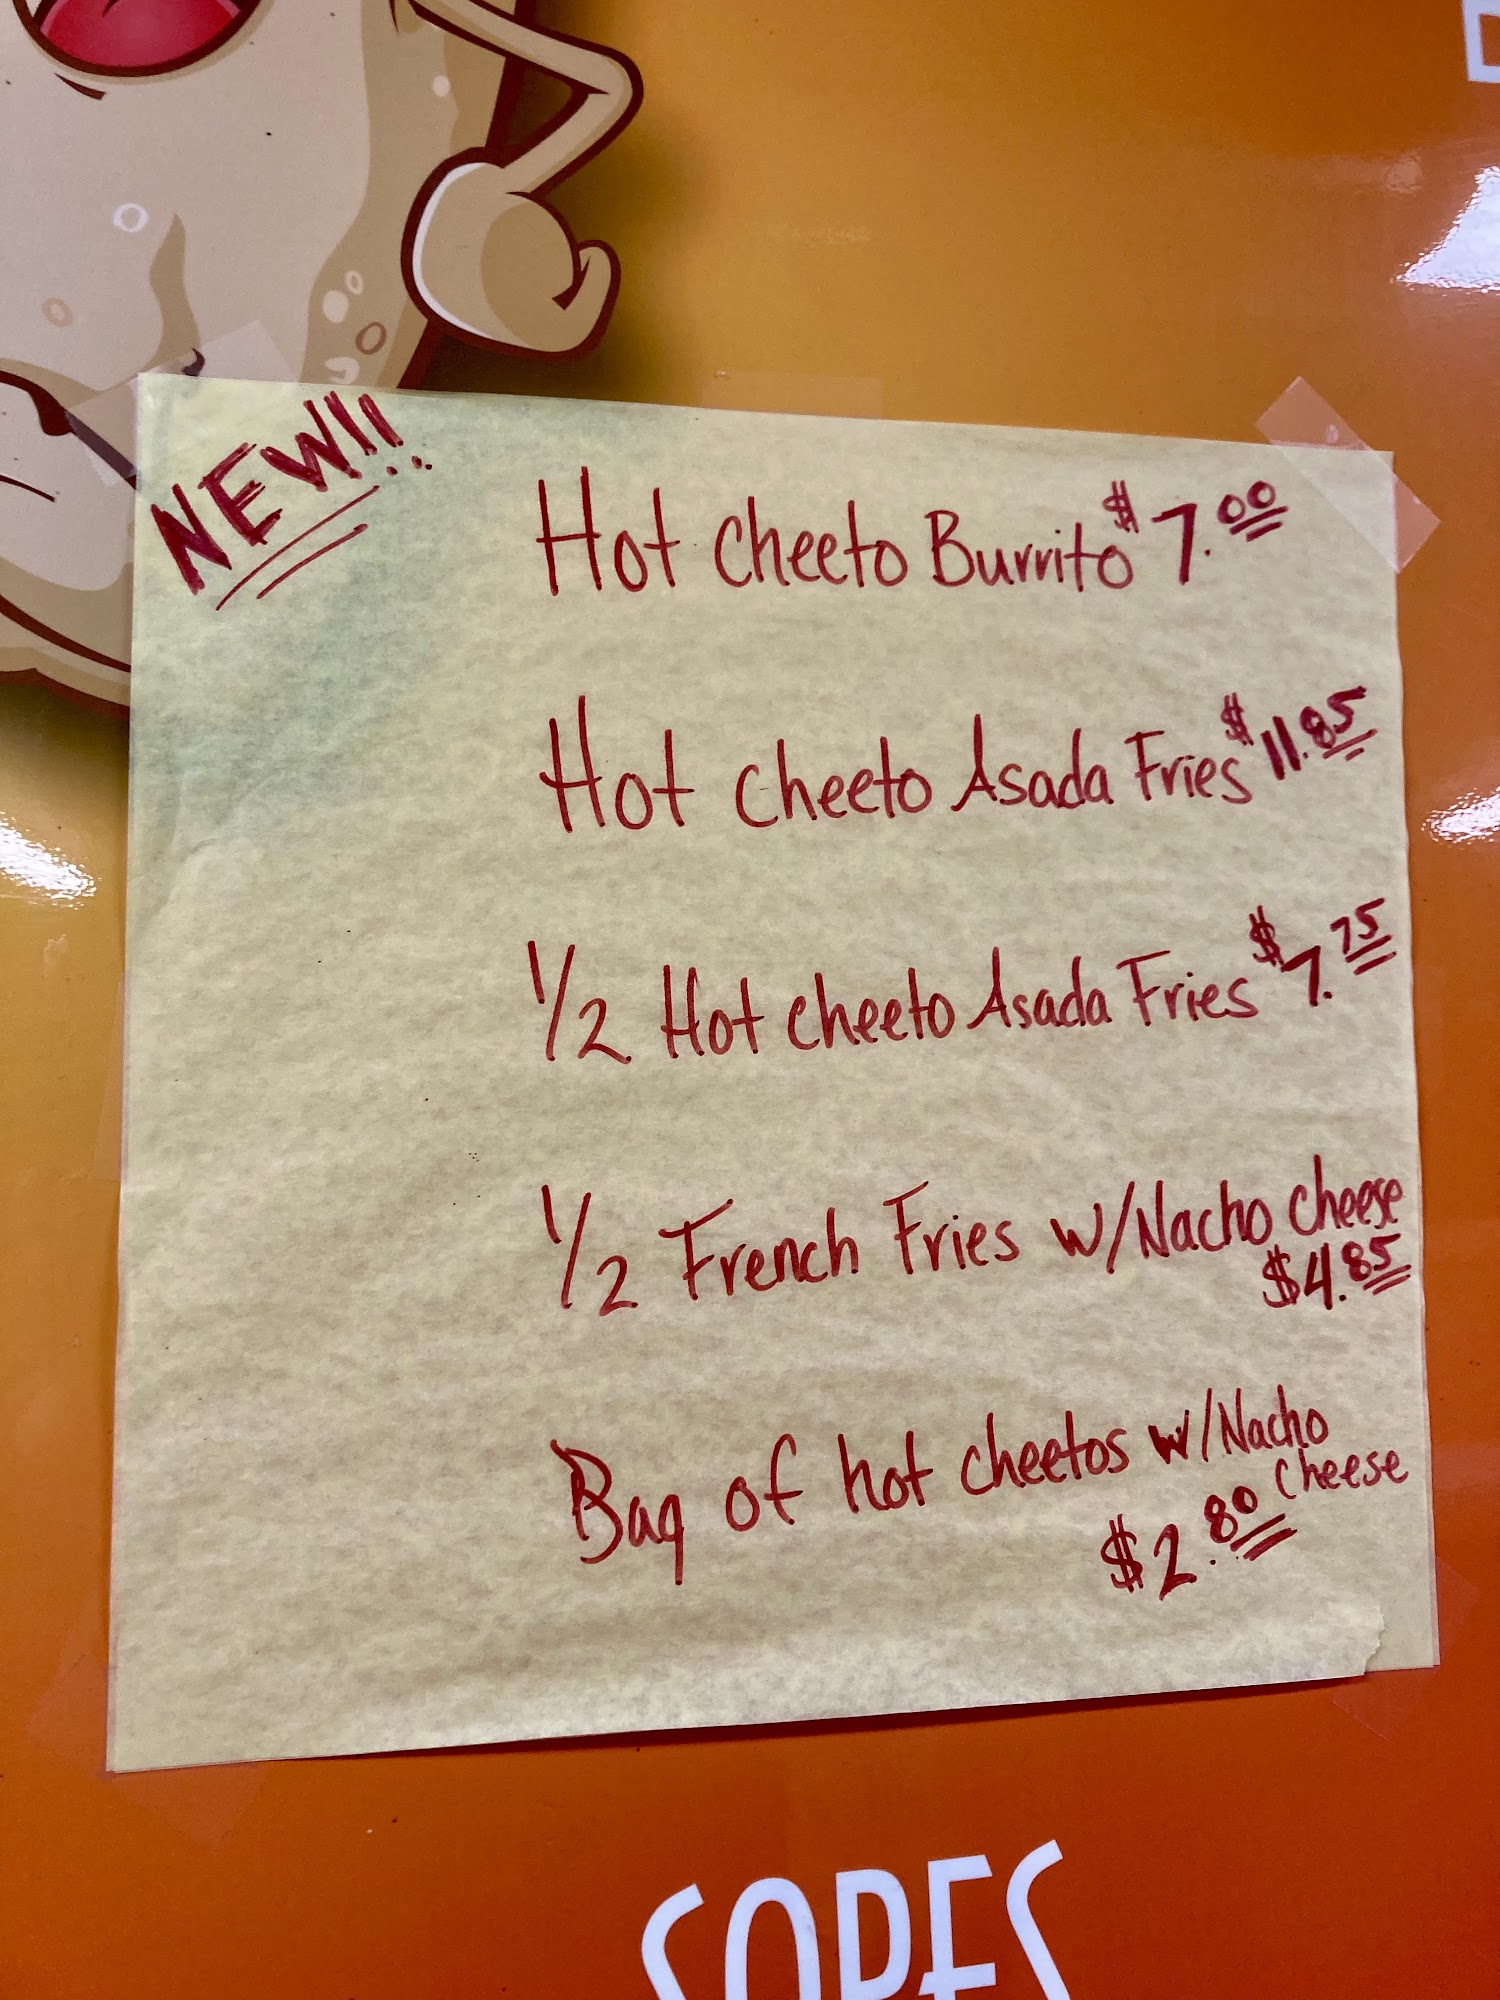 NEW!!!
Hot Cheeto Burrito $7.00
Hot Cheeto Asada Fries $11.85
1/2 Hot Cheeto Asada Fries $7.75
1/2 French Fries w/Nacho Cheese
$4.85
Bag of hot cheetos w/Nacho
Cheese
$2.80
SOPES